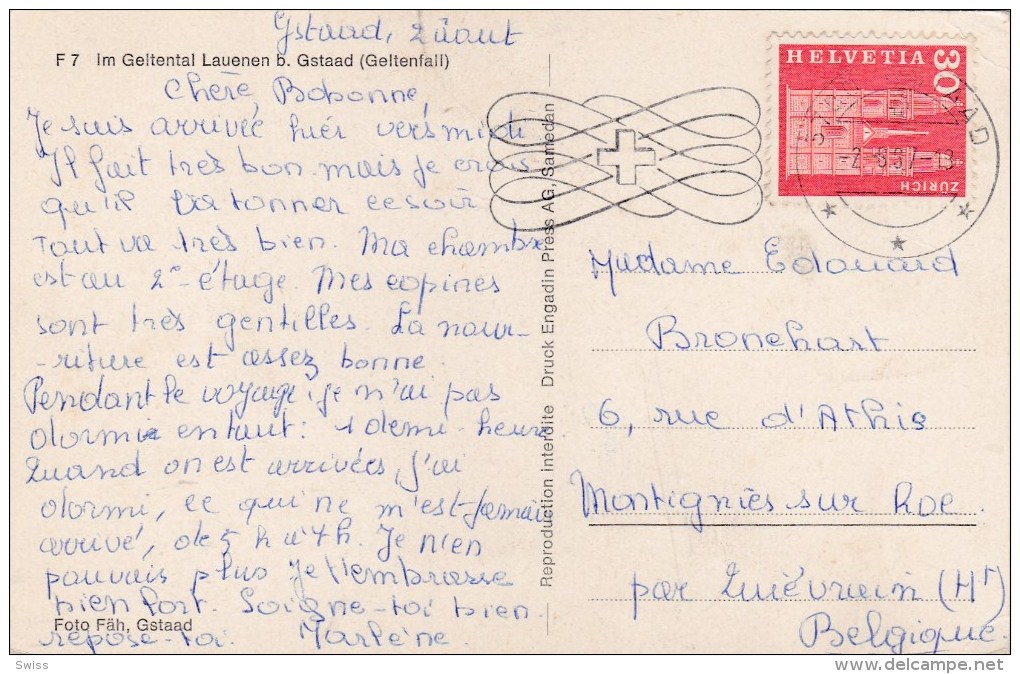 Gstaad, 2 août
F 7 Im Geltental Lauenen b. Gstaad (Geltenfall)
Chère, Bobonne,
Je suis arrivée hiér vers midi
Il fait très bon mais je crois
qu'il va tonner ce soir
Tout va très bien. Ma chambre
est au 2e étage. Mes copines
sont très gentilles. La nour-
-riture est assez bonne.
Pendant le voyage, je n'ai pas
dormi en tout : 1 demi-heure
Quand on est arrivées, j'ai
dormi, ce qui ne m'est jamais
arrivé, de 5 h à 7 h. Je n'en
pouvais plus Je t'embrasse
bien fort. Soigne-toi bien
repose-toi. Marlène
Foto Fäh, Gstaad
Reproduction interdite Druck Engadin Press AG, Samedan
HELVETIA
30
ZÜRICH
GSTAAD
Madame Edouard
Bronchart
6, rue d'Athis
Montignies sur Roc
par Quiévrain (Ht)
Belgique.
Swiss
www.delcampe.net